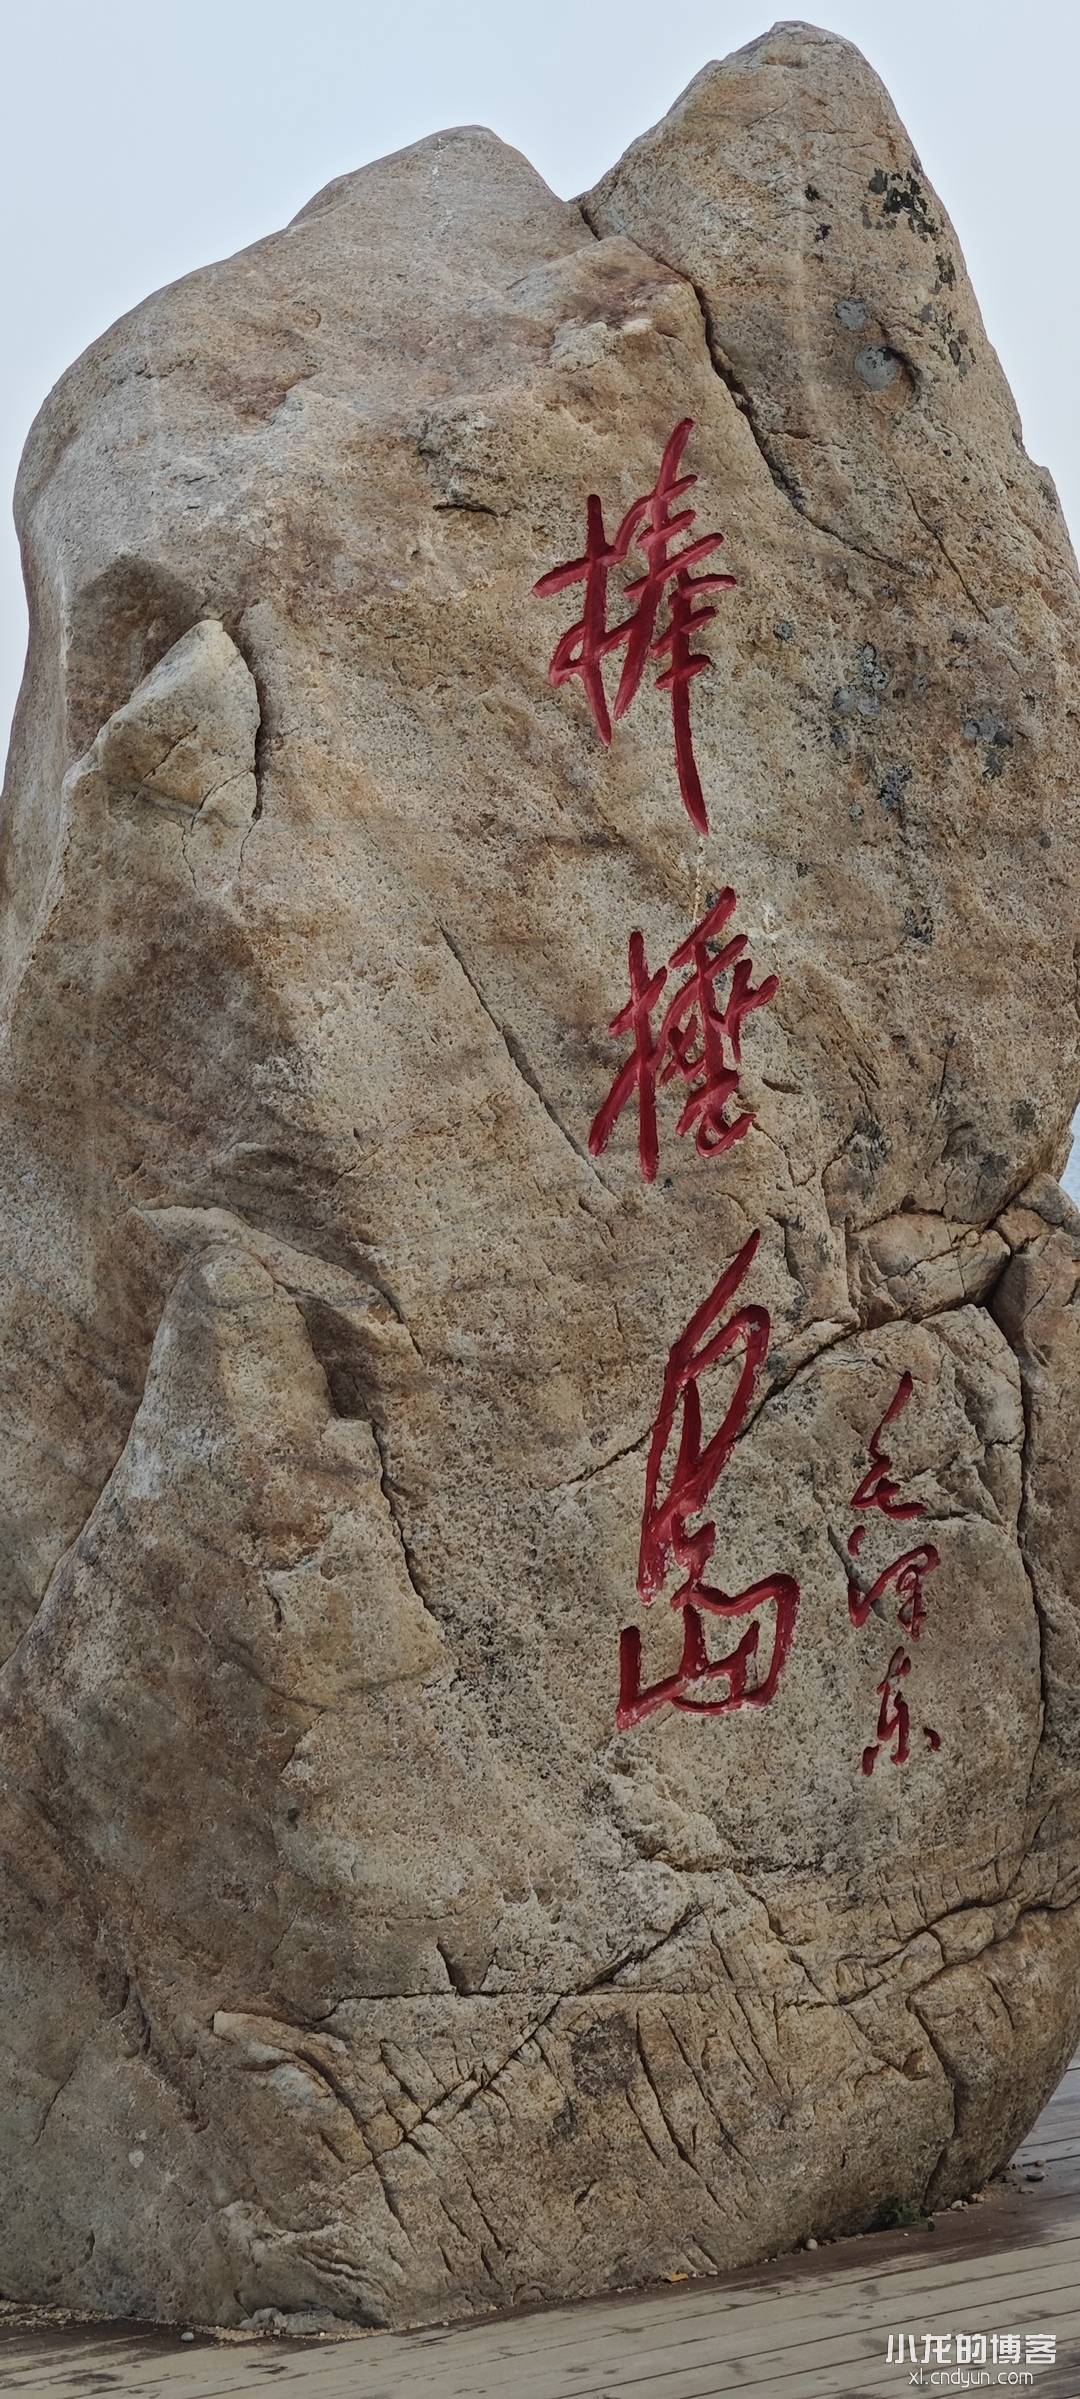 棒棰島
毛泽东
小龙的博客
xl.cndyun.com